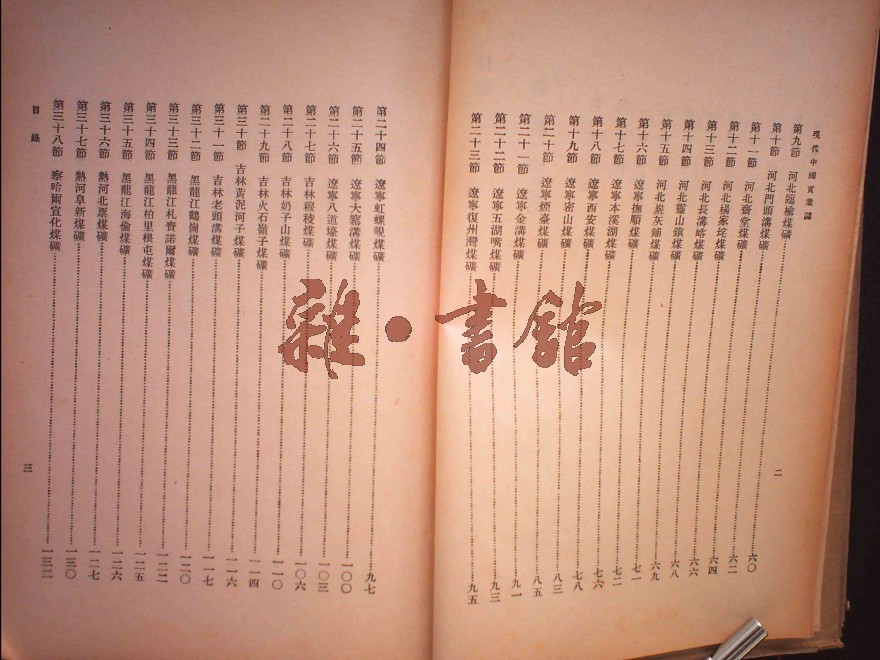 現代中國實業誌
二
第九節 河北臨榆煤礦……六〇
第十節 河北門頭溝煤礦……六二
第十一節 河北齋堂煤礦……六四
第十二節 河北楊家坨煤礦……六六
第十三節 河北長溝峪煤礦……六八
第十四節 河北靈山鎮煤礦……六九
第十五節 河北炭灰鋪煤礦……七一
第十六節 遼寧撫順煤礦……七二
第十七節 遼寧本溪湖煤礦……七六
第十八節 遼寧西安煤礦……七八
第十九節 遼寧密山煤礦……八三
第二十節 遼寧煙臺煤礦……八五
第二十一節 遼寧金溝煤礦……九一
第二十二節 遼寧五湖嘴煤礦……九三
第二十三節 遼寧復州灣煤礦……九五
第二十四節 遼寧虹螺峴煤礦……九七
第二十五節 遼寧大窰溝煤礦……一〇〇
第二十六節 遼寧八道壕煤礦……一〇三
第二十七節 吉林穆稜煤礦……一〇六
第二十八節 吉林奶子山煤礦……一一〇
第二十九節 吉林火石嶺子煤礦……一一四
第三十節 吉林黃泥河子煤礦……一一六
第三十一節 吉林老頭溝煤礦……一一七
第三十二節 黑龍江鶴崗煤礦……一二〇
第三十三節 黑龍江札賚諾爾煤礦……一二二
第三十四節 黑龍江柏里根屯煤礦……一二五
第三十五節 黑龍江海倫煤礦……一二六
第三十六節 熱河北票煤礦……一二七
第三十七節 熱河阜新煤礦……一三〇
第三十八節 察哈爾宣化煤礦……一三二
目錄
三
雜·書館